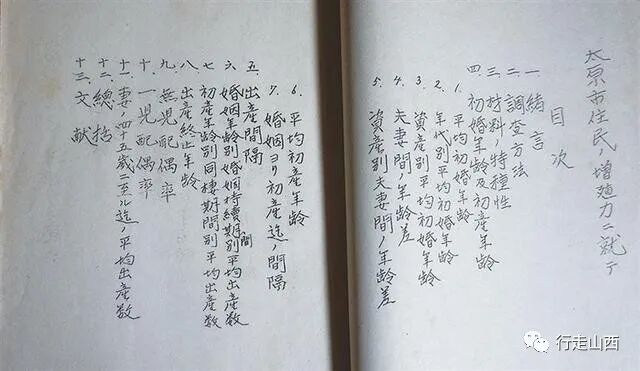 太原市住民ノ増殖力ニ就テ
目次
一 緒言
二 調査方法
三 材料ノ特種性
四 初婚年齢及初産年齢
1. 平均初婚年齢
2. 年代別平均初婚年齢
3. 資産別平均初婚年齢
4. 夫妻間ノ年齢差
5. 資産別夫妻間ノ年齢差
6. 平均初産年齢
7. 婚姻ヨリ初産迄ノ間隔
五 出産間隔
六 婚姻年齢別婚姻持続期間別平均出産数
七 初産年齢別同棲期間別平均出産数
八 出産終止年齢
九 無児配偶率
十 一児配偶率
十一 妻ノ四十五歳ニ至ル迄ノ平均出産数
十二 總括
十三 文献
行走山西